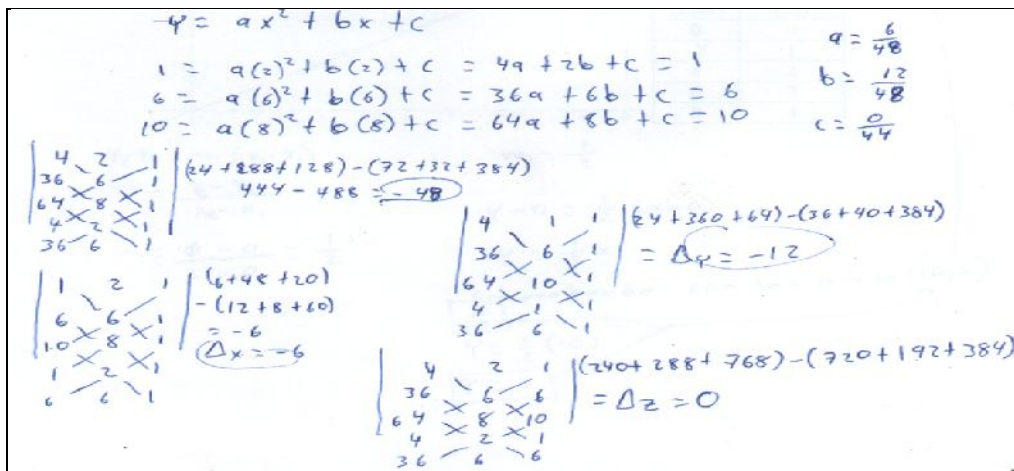 y = ax² + bx + c
1 = a(2)² + b(2) + c = 4a + 2b + c = 1
6 = a(6)² + b(6) + c = 36a + 6b + c = 6
10 = a(8)² + b(8) + c = 64a + 8b + c = 10
a = 6/48
b = 12/48
c = 0/44
4 2 1
36 6 1
64 8 1
4 2 1
36 6 1
(24 + 288 + 128) - (72 + 32 + 384)
444 - 488 = - 48
1 2 1
6 6 1
10 8 1
1 2 1
6 6 1
(6 + 48 + 20)
- (12 + 8 + 60)
= -6
Δx = -6
4 1 1
36 6 1
64 10 1
4 1 1
36 6 1
(24 + 360 + 64) - (36 + 40 + 384)
= Δy = -12
4 2 1
36 6 6
64 8 10
4 2 1
36 6 6
(240 + 288 + 768) - (720 + 192 + 384)
= Δz = 0